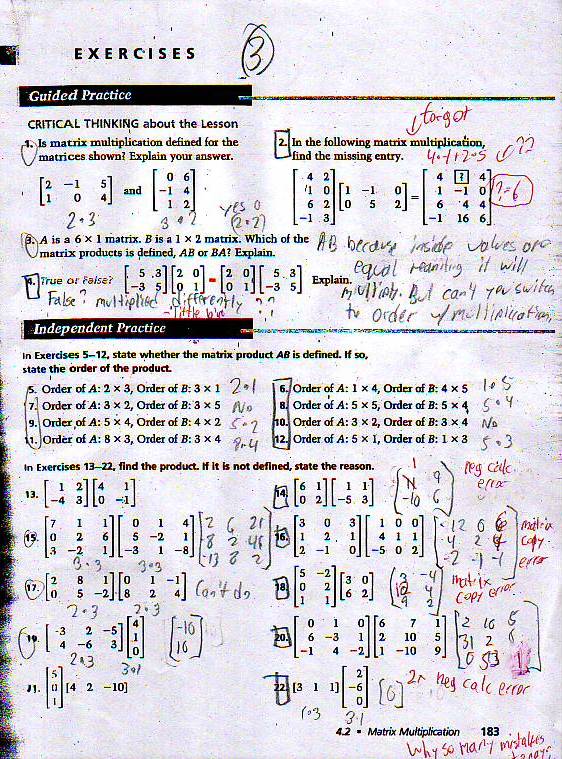 EXERCISES
3
Guided Practice
CRITICAL THINKING about the Lesson
1. Is matrix multiplication defined for the
matrices shown? Explain your answer.
[2 -1 5] and [0 6]
[1 0 4] [-1 4]
[1 2]
2·3 3·2 yes
(2·2)
forgot
2. In the following matrix multiplication,
find the missing entry.
4·-1+2·5 ??
[4 2] [1 -1 0] = [4 ? 4]
[1 0] [0 5 2] [1 -1 0]
[6 2] [6 4 4]
[-1 3] [-1 16 6]
?=6
3. A is a 6 × 1 matrix. B is a 1 × 2 matrix. Which of the
matrix products is defined, AB or BA? Explain.
AB because inside values are
equal meaning it will
multiply. But can't you switch
to order w/ multiplication
4. True or False? [5 3] [2 0] = [2 0] [5 3] Explain.
[-3 5] [0 1] [0 1] [-3 5]
False? multiplied differently ??
Independent Practice
In Exercises 5–12, state whether the matrix product AB is defined. If so,
state the order of the product.
5. Order of A: 2 × 3, Order of B: 3 × 1 2·1
6. Order of A: 1 × 4, Order of B: 4 × 5 1·5
7. Order of A: 3 × 2, Order of B: 3 × 5 No
8. Order of A: 5 × 5, Order of B: 5 × 4 5·4
9. Order of A: 5 × 4, Order of B: 4 × 2 5·2
10. Order of A: 3 × 2, Order of B: 3 × 4 No
11. Order of A: 8 × 3, Order of B: 3 × 4 8·4
12. Order of A: 5 × 1, Order of B: 1 × 3 5·3
In Exercises 13–22, find the product. If it is not defined, state the reason.
13. [1 2] [4 1]
[-4 3] [0 -1]
14. [6 1] [1 1]
[0 2] [-5 3]
neg calc
error
15. [7 1 1] [0 1 4]
[0 2 6] [5 -2 1]
[3 -2 1] [-3 1 -8]
3·3 3·3
16. [3 0 3] [1 0 0]
[1 2 1] [4 1 1]
[2 -1 0] [-5 0 2]
matrix
copy
error
17. [2 8 1] [0 1 -1]
[0 5 -2] [8 2 4]
Can't do
2·3 2·3
18. [5 -2] [3 0]
[0 2] [6 2]
[1 1]
matrix
copy error
19. [-3 2 -5] [4]
[4 -6 3] [1]
[0]
[-10]
[10]
2·3 3·1
20. [0 1 0] [6 7 1]
[6 -3 1] [2 10 5]
[-1 4 -2] [1 -10 9]
21. [5] [4 2 -10]
[0]
[1]
22. [3 1 1] [2]
[-6]
[0]
[0]
neg calc error
1·3 3·1
4.2 • Matrix Multiplication 183
Why so many mistakes